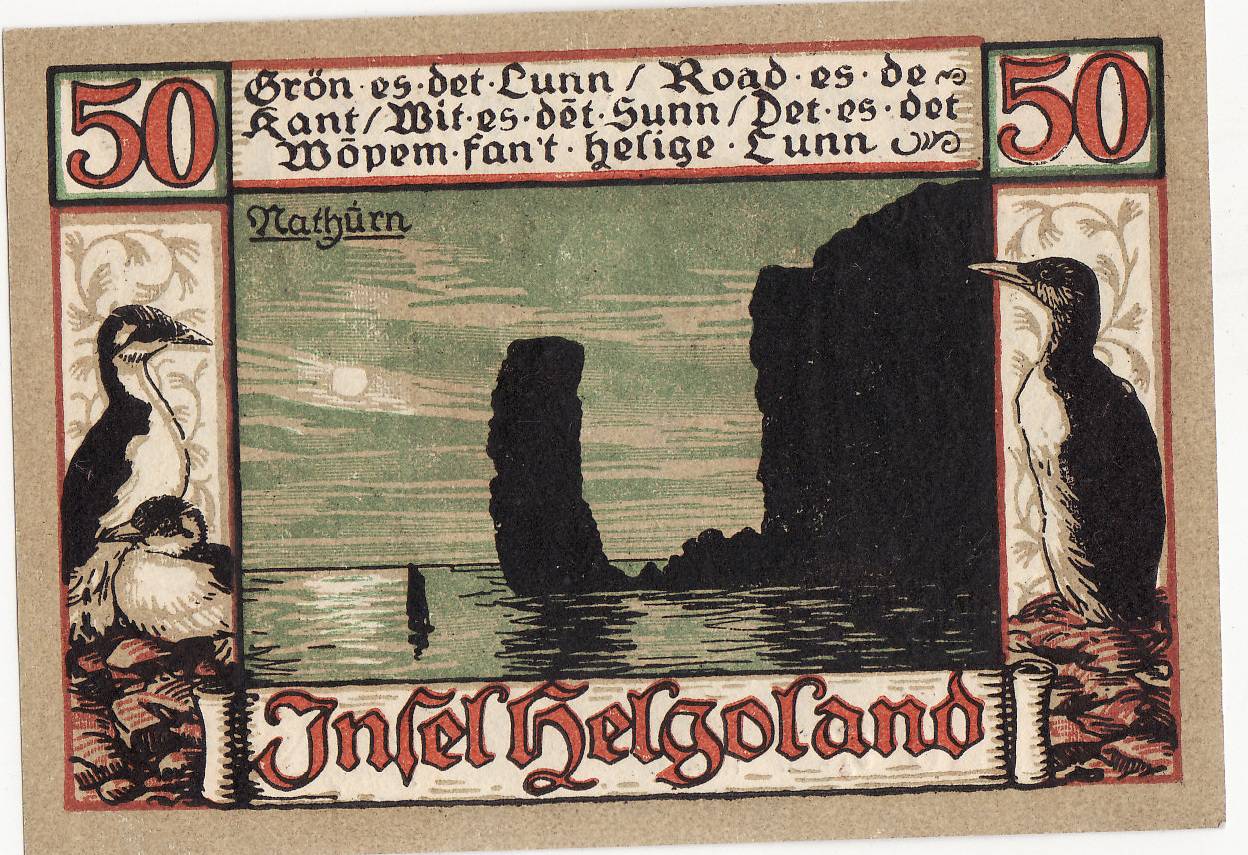 50
Grön·es·det·Lunn / Road·es·de
Kant/Wit·es·dēt·Sunn/Det·es·det
Wōpem·fan't·helige·Lunn
50
Nathŭrn
Inſel Helgoland